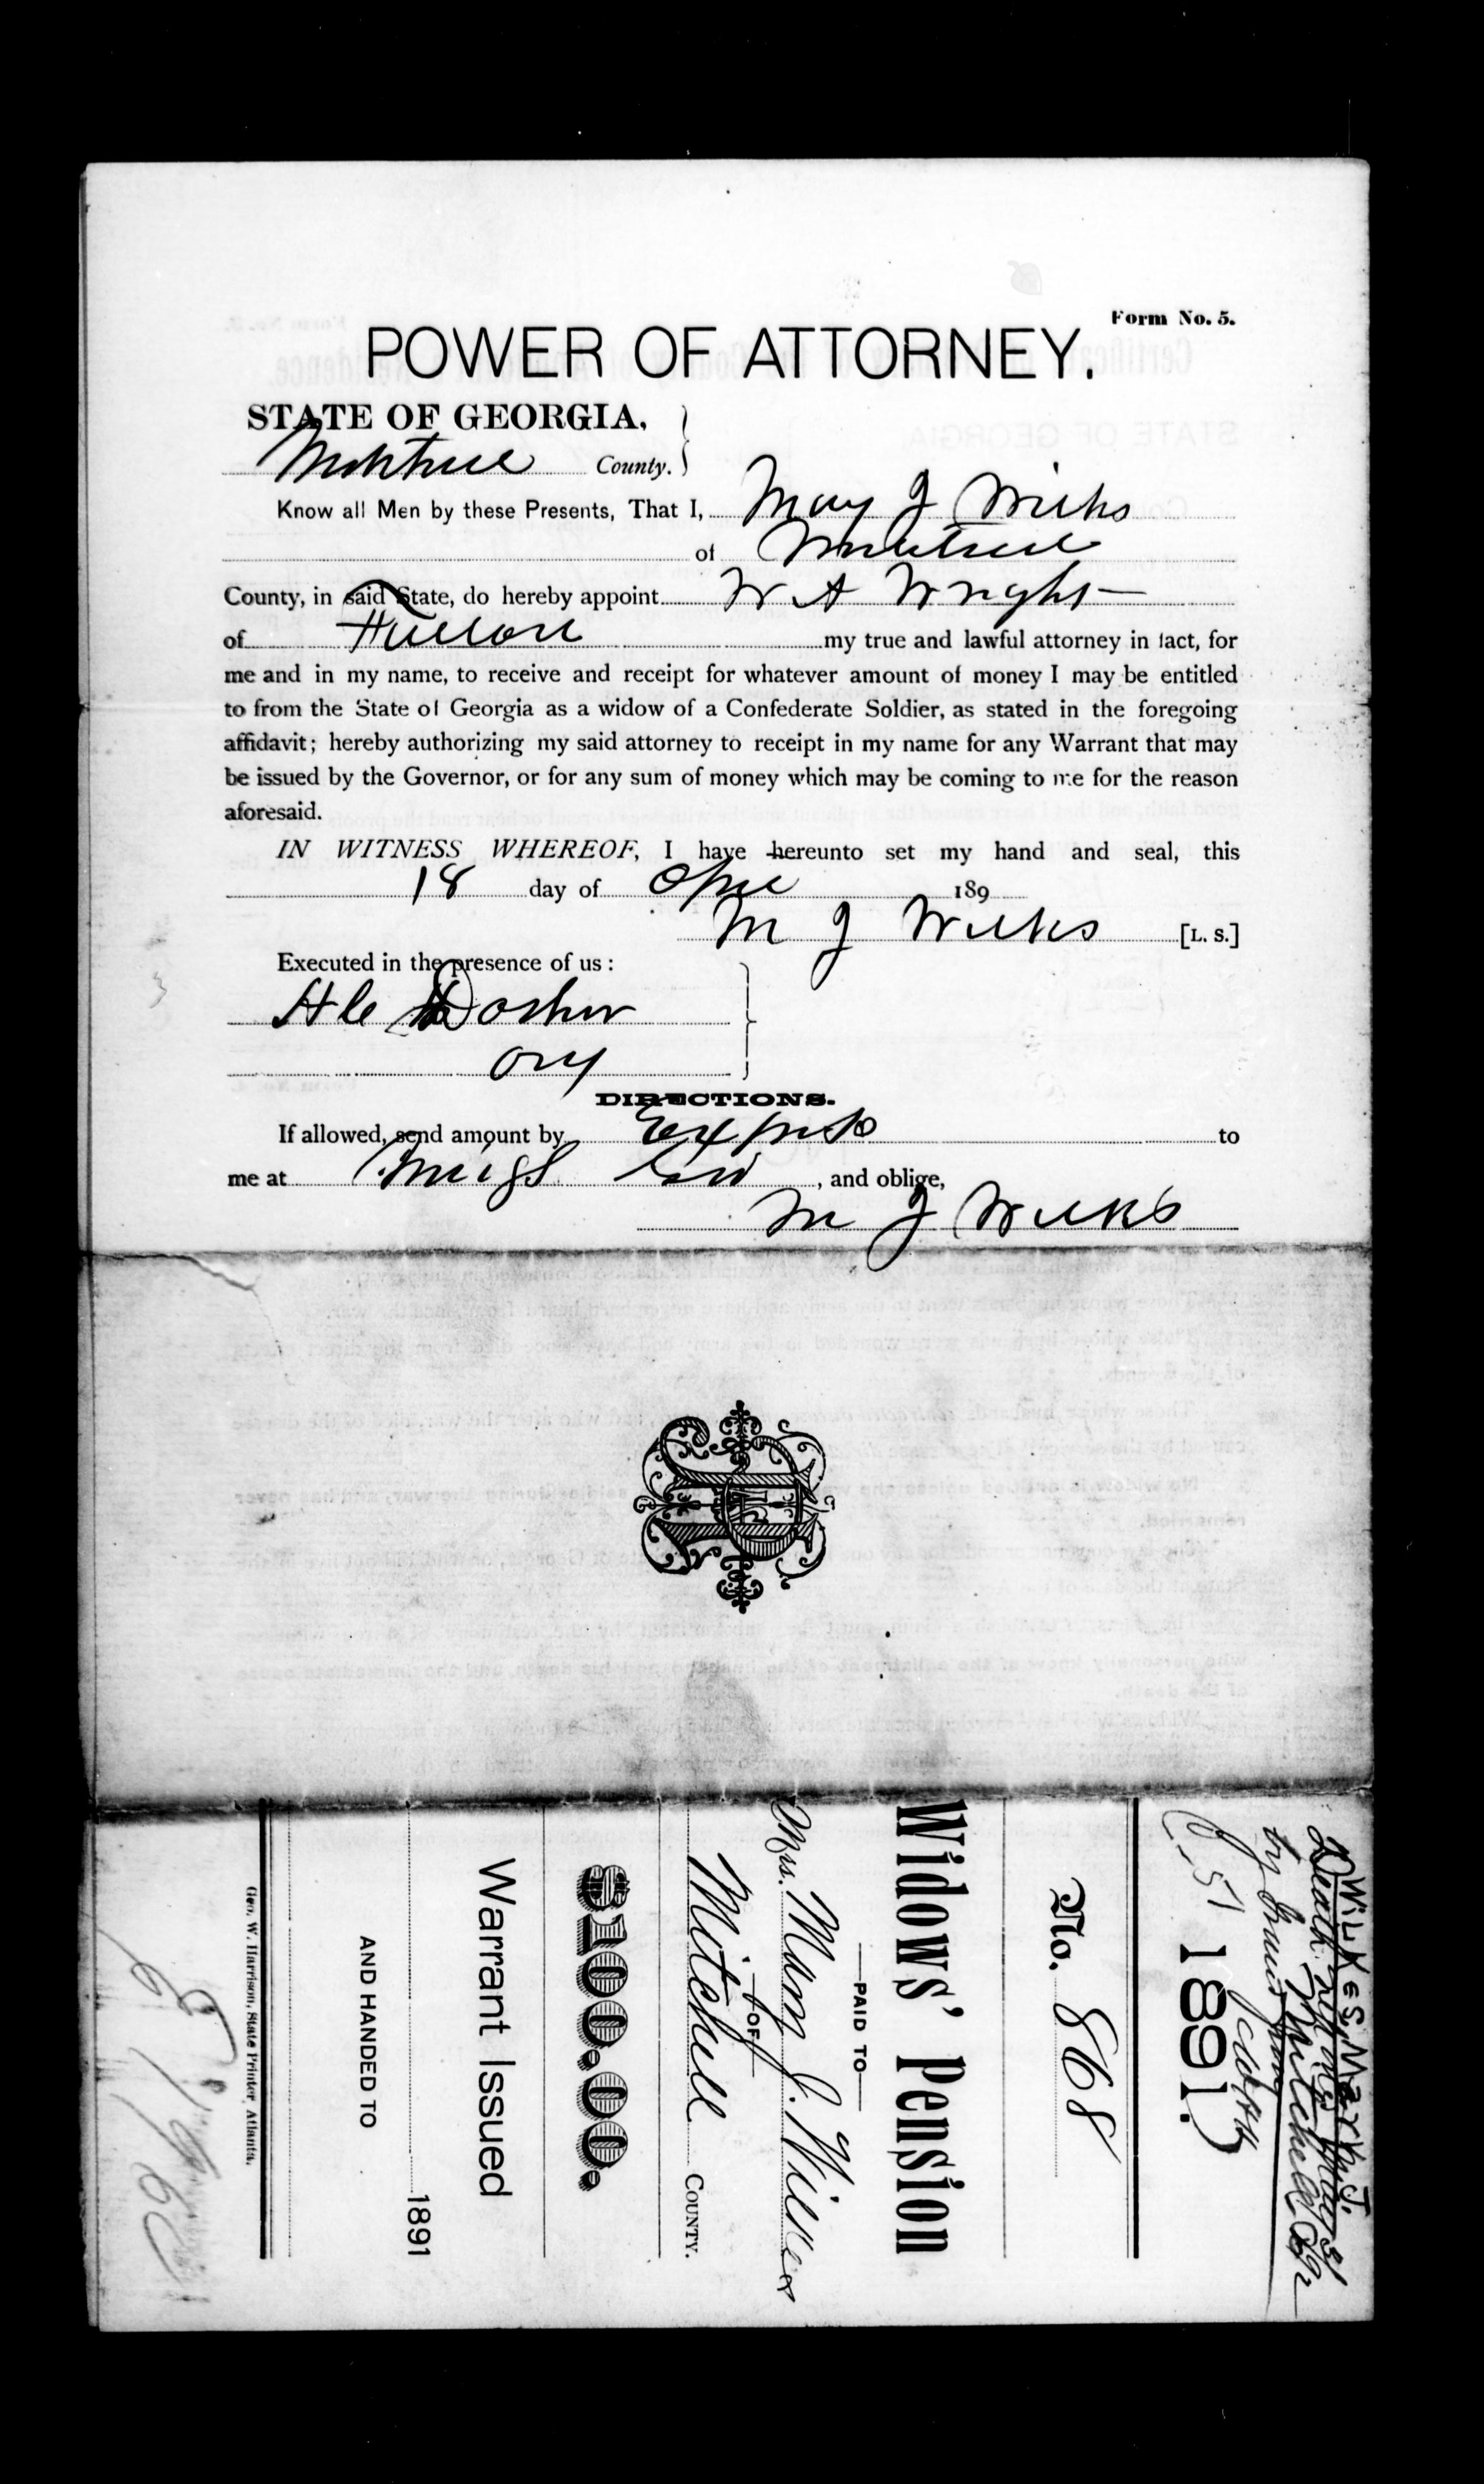 Form No. 5.
POWER OF ATTORNEY.
STATE OF GEORGIA,
Mitchell County.
Know all Men by these Presents, That I, Mary J Wilks
of Mitchell
County, in said State, do hereby appoint W A Wright
of Fulton my true and lawful attorney in fact, for
me and in my name, to receive and receipt for whatever amount of money I may be entitled
to from the State of Georgia as a widow of a Confederate Soldier, as stated in the foregoing
affidavit; hereby authorizing my said attorney to receipt in my name for any Warrant that may
be issued by the Governor, or for any sum of money which may be coming to me for the reason
aforesaid.
IN WITNESS WHEREOF, I have hereunto set my hand and seal, this
18 day of April 189
M J Wilks [L. S.]
Executed in the presence of us:
H C Dasher
Ory
DIRECTIONS.
If allowed, send amount by Express to
me at , and oblige,
M J Wilks
WILKES, Mary J.
Mitchell Co
1891.
No. 868
Widows' Pension
PAID TO
Mrs. Mary J. Wilkes
OF
Mitchell COUNTY.
$100.00.
Warrant Issued
1891
AND HANDED TO
Geo. W. Harrison, State Printer, Atlanta.